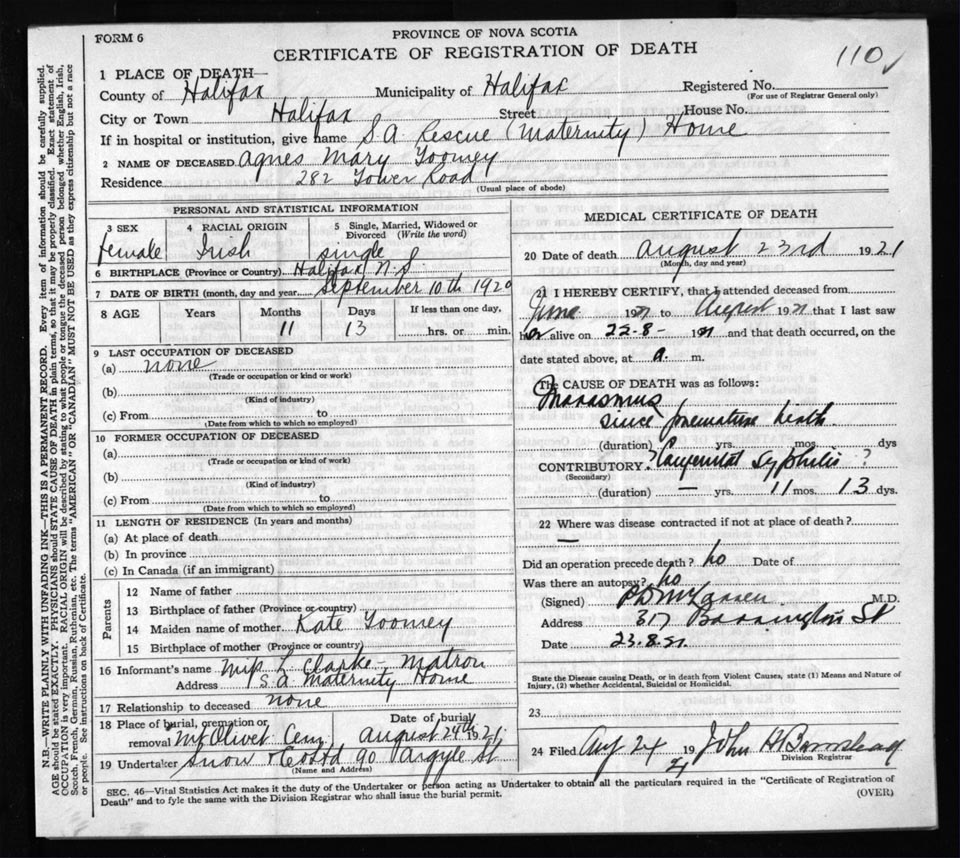 FORM 6
PROVINCE OF NOVA SCOTIA
CERTIFICATE OF REGISTRATION OF DEATH
110
1 PLACE OF DEATH—
County of Halifax Municipality of Halifax Registered No.
(For use of Registrar General only)
City or Town Halifax Street House No.
If in hospital or institution, give name S A Rescue (Maternity) Home
2 NAME OF DECEASED Agnes Mary Toomey
Residence 282 Tower Road
(Usual place of abode)
PERSONAL AND STATISTICAL INFORMATION
3 SEX 4 RACIAL ORIGIN 5 Single, Married, Widowed or Divorced (Write the word)
Female Irish single
6 BIRTHPLACE (Province or Country) Halifax N.S.
7 DATE OF BIRTH (month, day and year) September 10th 1920
8 AGE Years Months Days If less than one day,
11 13 hrs. or min.
9 LAST OCCUPATION OF DECEASED
(a) none
(Trade or occupation or kind of work)
(b)
(Kind of industry)
(c) From to
(Date from which to which so employed)
10 FORMER OCCUPATION OF DECEASED
(a)
(Trade or occupation or kind of work)
(b)
(Kind of industry)
(c) From to
(Date from which to which so employed)
11 LENGTH OF RESIDENCE (In years and months)
(a) At place of death
(b) In province
(c) In Canada (if an immigrant)
Parents
12 Name of father
13 Birthplace of father (Province or country)
14 Maiden name of mother Kate Toomey
15 Birthplace of mother (Province or country)
16 Informant's name L Clarke - Matron
Address S.A Maternity Home
17 Relationship to deceased none
18 Place of burial, cremation or removal Mt Olivet Cem Date of burial August 24th 1921
19 Undertaker Snow & Co Ltd 90 Argyle St
(Name and Address)
MEDICAL CERTIFICATE OF DEATH
20 Date of death August 23rd 1921
(Month, day and year)
21 I HEREBY CERTIFY, that I attended deceased from
June 1921 to August 1921 that I last saw
her alive on 22-8- 1921 and that death occurred, on the
date stated above, at a. m.
The CAUSE OF DEATH was as follows:
Marasmus
since premature
(duration) yrs. mos. dys
CONTRIBUTORY ? Congenital Syphilis ?
(Secondary)
(duration) — yrs. 11 mos. 13 dys.
22 Where was disease contracted if not at place of death?
—
Did an operation precede death? no Date of
Was there an autopsy? no
(Signed) M.D.
Address 317 Barrington St
Date 23.8.21.
State the Disease causing Death, or in death from Violent Causes, state (1) Means and Nature of Injury, (2) whether Accidental, Suicidal or Homicidal.
23
24 Filed Aug 24 19 21 John
Division Registrar
SEC. 46—Vital Statistics Act makes it the duty of the Undertaker or person acting as Undertaker to obtain all the particulars required in the "Certificate of Registration of
Death" and to fyle the same with the Division Registrar who shall issue the burial permit.
(OVER)
N.B.—WRITE PLAINLY WITH UNFADING INK—THIS IS A PERMANENT RECORD. Every item of information should be carefully supplied.
AGE should be stated EXACTLY. PHYSICIANS should STATE CAUSE OF DEATH in plain terms, so that it may be properly classified. Exact statement of
OCCUPATION is very important. RACIAL ORIGIN will be described by stating to what people or tongue the deceased person belonged whether English, Irish,
Scotch, French, German, Russian, Ruthenian, etc. The terms "AMERICAN" OR "CANADIAN" MUST NOT BE USED as they express citizenship but not a race
or people. See instructions on back of Certificate.